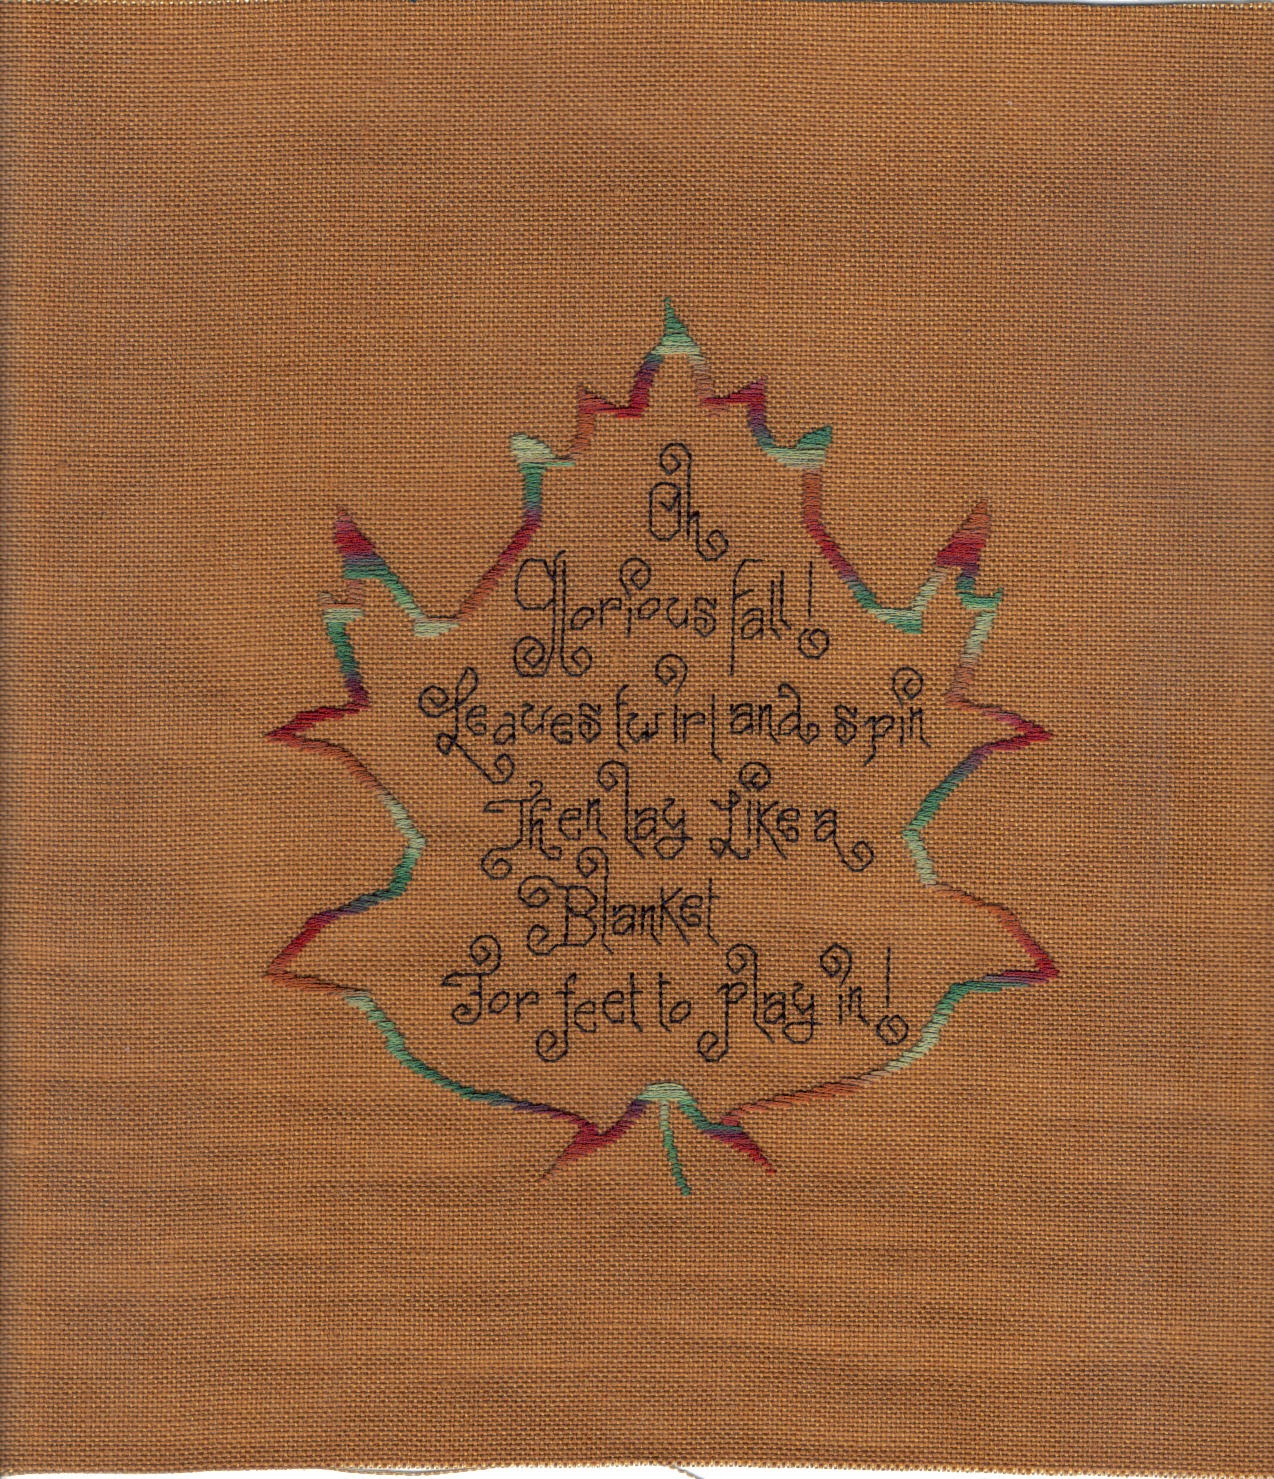 Oh
Glorious fall!
Leaves twirl and spin
Then lay Like a
Blanket
For feet to play in!